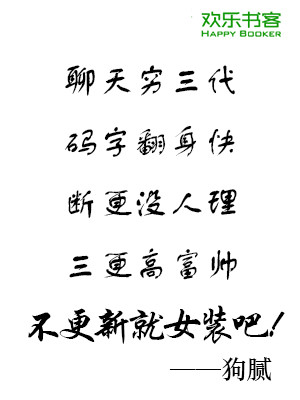 欢乐书客
HAPPY BOOKER
聊天穷三代
码字翻身快
断更没人理
三更高富帅
不更新就女装吧!
——狗腻